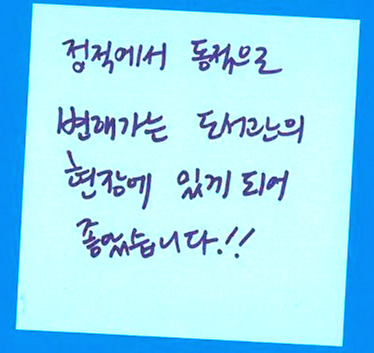 정적에서 동적으로
변해가는 도서관의
현장에 있게 되어
좋았습니다!!